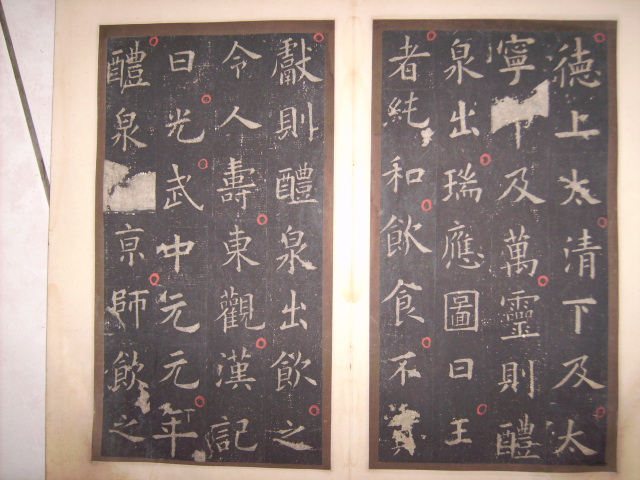 德上太清下及太
寧及萬靈則醴
泉出瑞應圖曰王
者純和飲食不貢
獻則醴泉出飲之
令人壽東觀漢記
曰光武中元元年
醴泉京師飲之